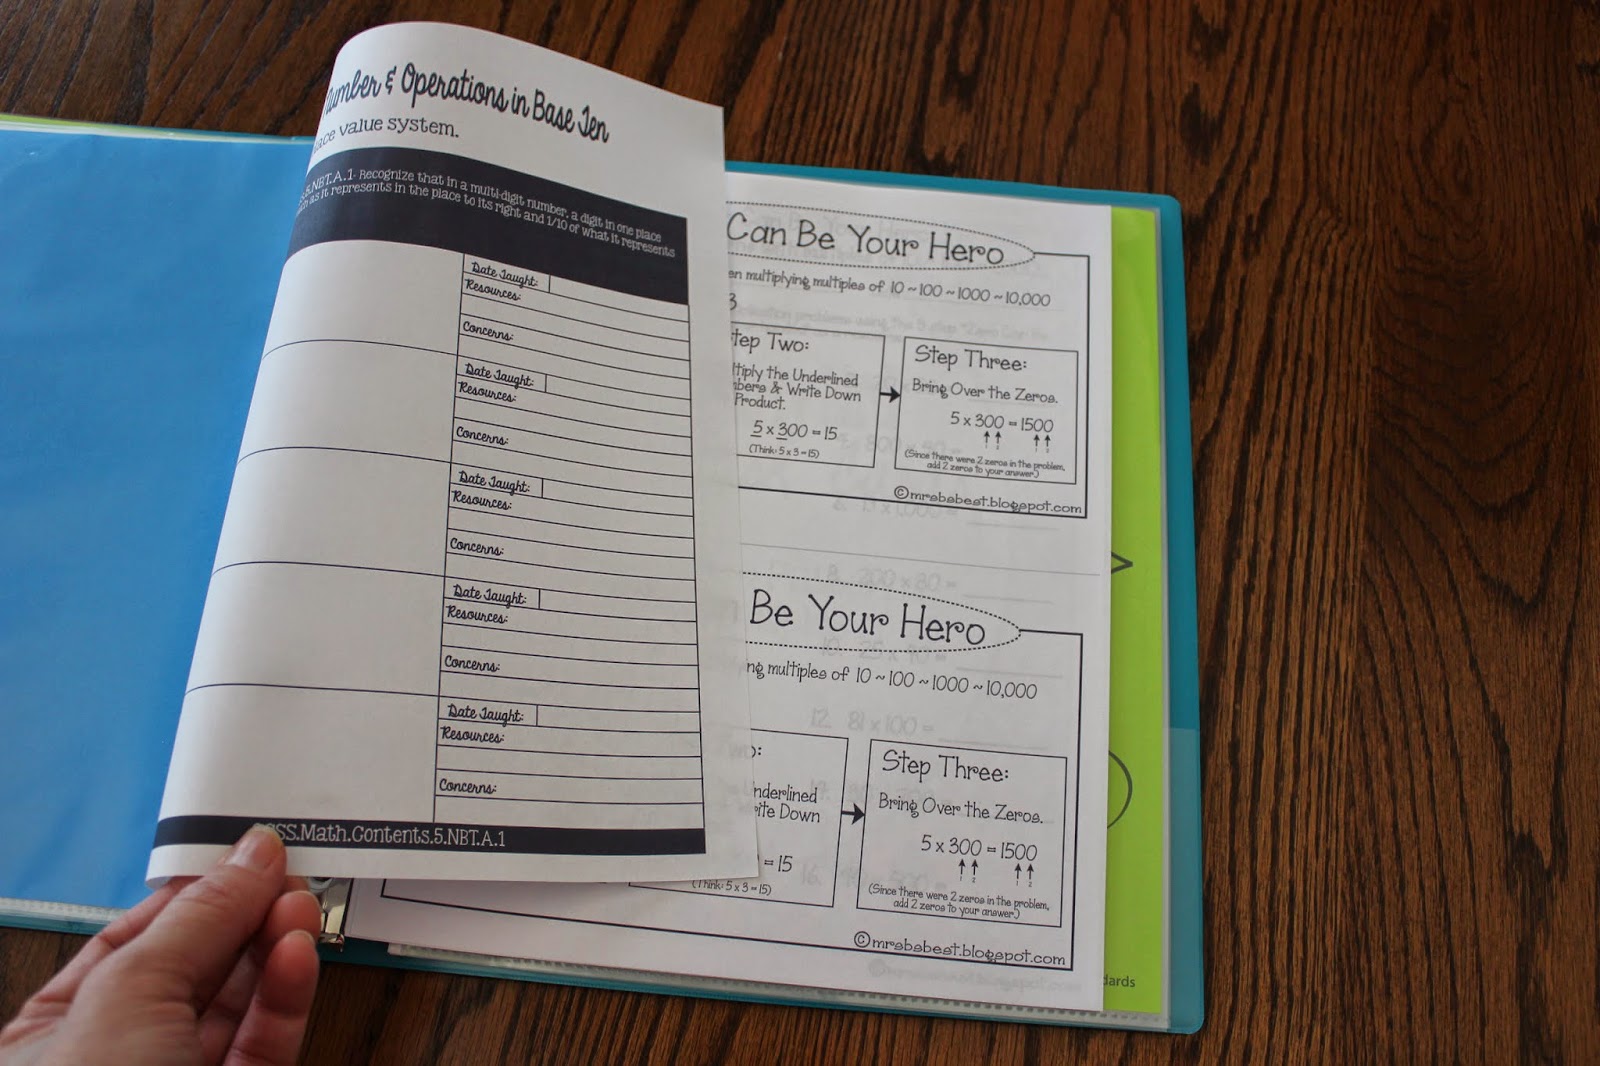 Number & Operations in Base Ten
place value system.
5.NBT.A.1- Recognize that in a multi-digit number, a digit in one place
as it represents in the place to its right and 1/10 of what it represents
Date Taught:
Resources:
Concerns:
Date Taught:
Resources:
Concerns:
Date Taught:
Resources:
Concerns:
Date Taught:
Resources:
Concerns:
Date Taught:
Resources:
Concerns:
CCSS.Math.Contents.5.NBT.A.1
Can Be Your Hero
en multiplying multiples of 10 ~ 100 ~ 1000 ~ 10,000
3
tep Two:
ltiply the Underlined
bers & Write Down
Product.
5 x 300 = 15
(Think: 5 x 3 = 15)
Step Three:
Bring Over the Zeros.
5 x 300 = 1500
1 2 1 2
(Since there were 2 zeros in the problem,
add 2 zeros to your answer.)
©mrsbsbest.blogspot.com
Be Your Hero
ng multiples of 10 ~ 100 ~ 1000 ~ 10,000
o:
nderlined
ite Down
= 15
(Think: 5 x 3 = 15)
Step Three:
Bring Over the Zeros.
5 x 300 = 1500
1 2 1 2
(Since there were 2 zeros in the problem,
add 2 zeros to your answer.)
©mrsbsbest.blogspot.com
8. 300 x 80 =
12. 81 x 100 =
dards